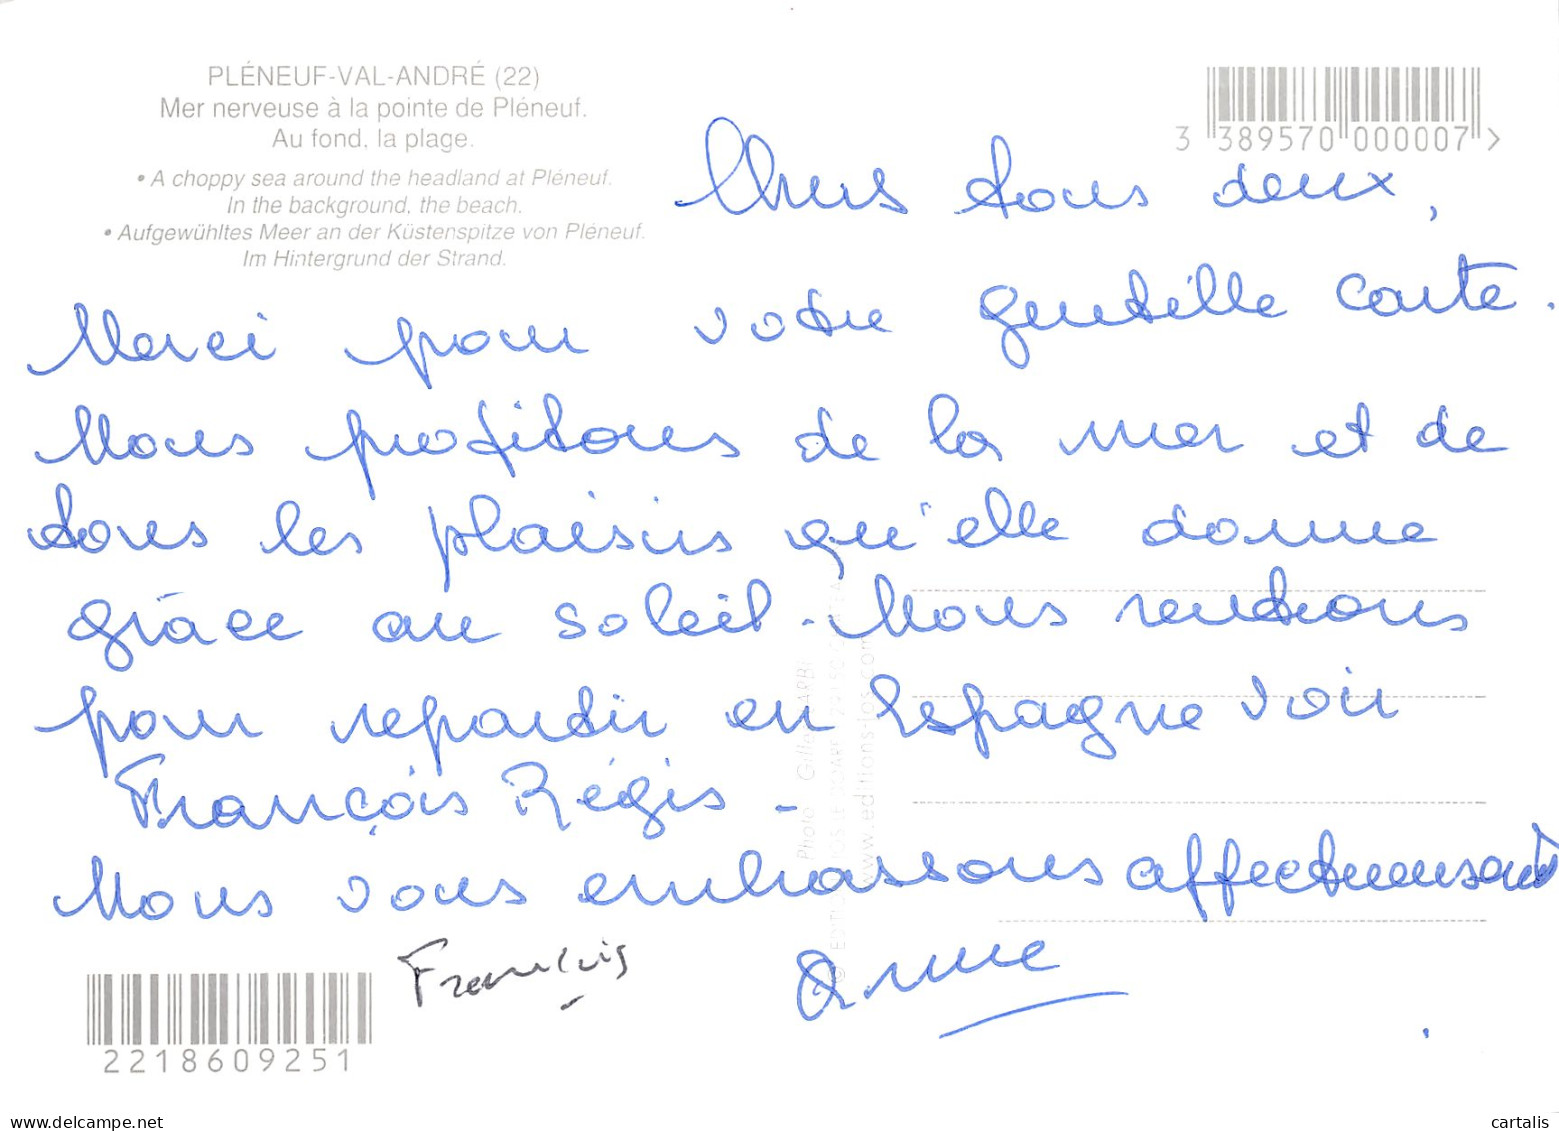 PLÉNEUF-VAL-ANDRÉ (22)
Mer nerveuse à la pointe de Pléneuf.
Au fond, la plage.
• A choppy sea around the headland at Pléneuf.
In the background, the beach.
• Aufgewühltes Meer an der Küstenspitze von Pléneuf.
Im Hintergrund der Strand.
3 389570 000007 >
Chers tous deux,
Merci pour votre gentille carte.
Nous profitons de la mer et de
tous les plaisirs qu'elle donne
grâce au soleil. Nous rentrons
pour repartir en Espagne voir
François Régis -
Nous vous embrassons affectueusement
François Anne
Photo
www.editionsjos.com
2218609251
delcampe.net
cartalis